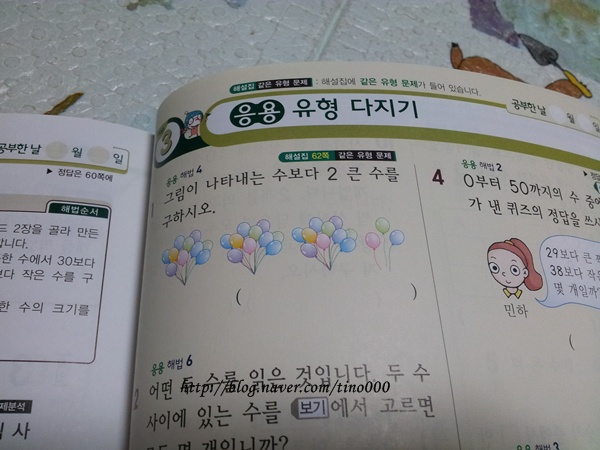 공부한 날 월 일
▶ 정답은 60쪽에
해법순서
2장을 골라 만든
입니다.
한 수에서 30보다
보다 작은 수를 구
한 수의 크기를
해설집 같은 유형 문제 : 해설집에 같은 유형 문제가 들어 있습니다.
3 응용 유형 다지기
공부한 날 월
해설집 62쪽 같은 유형 문제
응용 해법 4
1 그림이 나타내는 수보다 2 큰 수를
구하시오.
( )
응용 해법 6
2 어떤 두 수를 읽은 것입니다. 두 수
사이에 있는 수를 보기 에서 고르면
모두 몇 개입니까?
응용 해법 2
4 0부터 50까지의 수 중에
가 낸 퀴즈의 정답을 쓰시
29보다 큰
38보다 작은
몇 개일까
민하
(
응용 해법 3
http://blog.naver.com/tino000